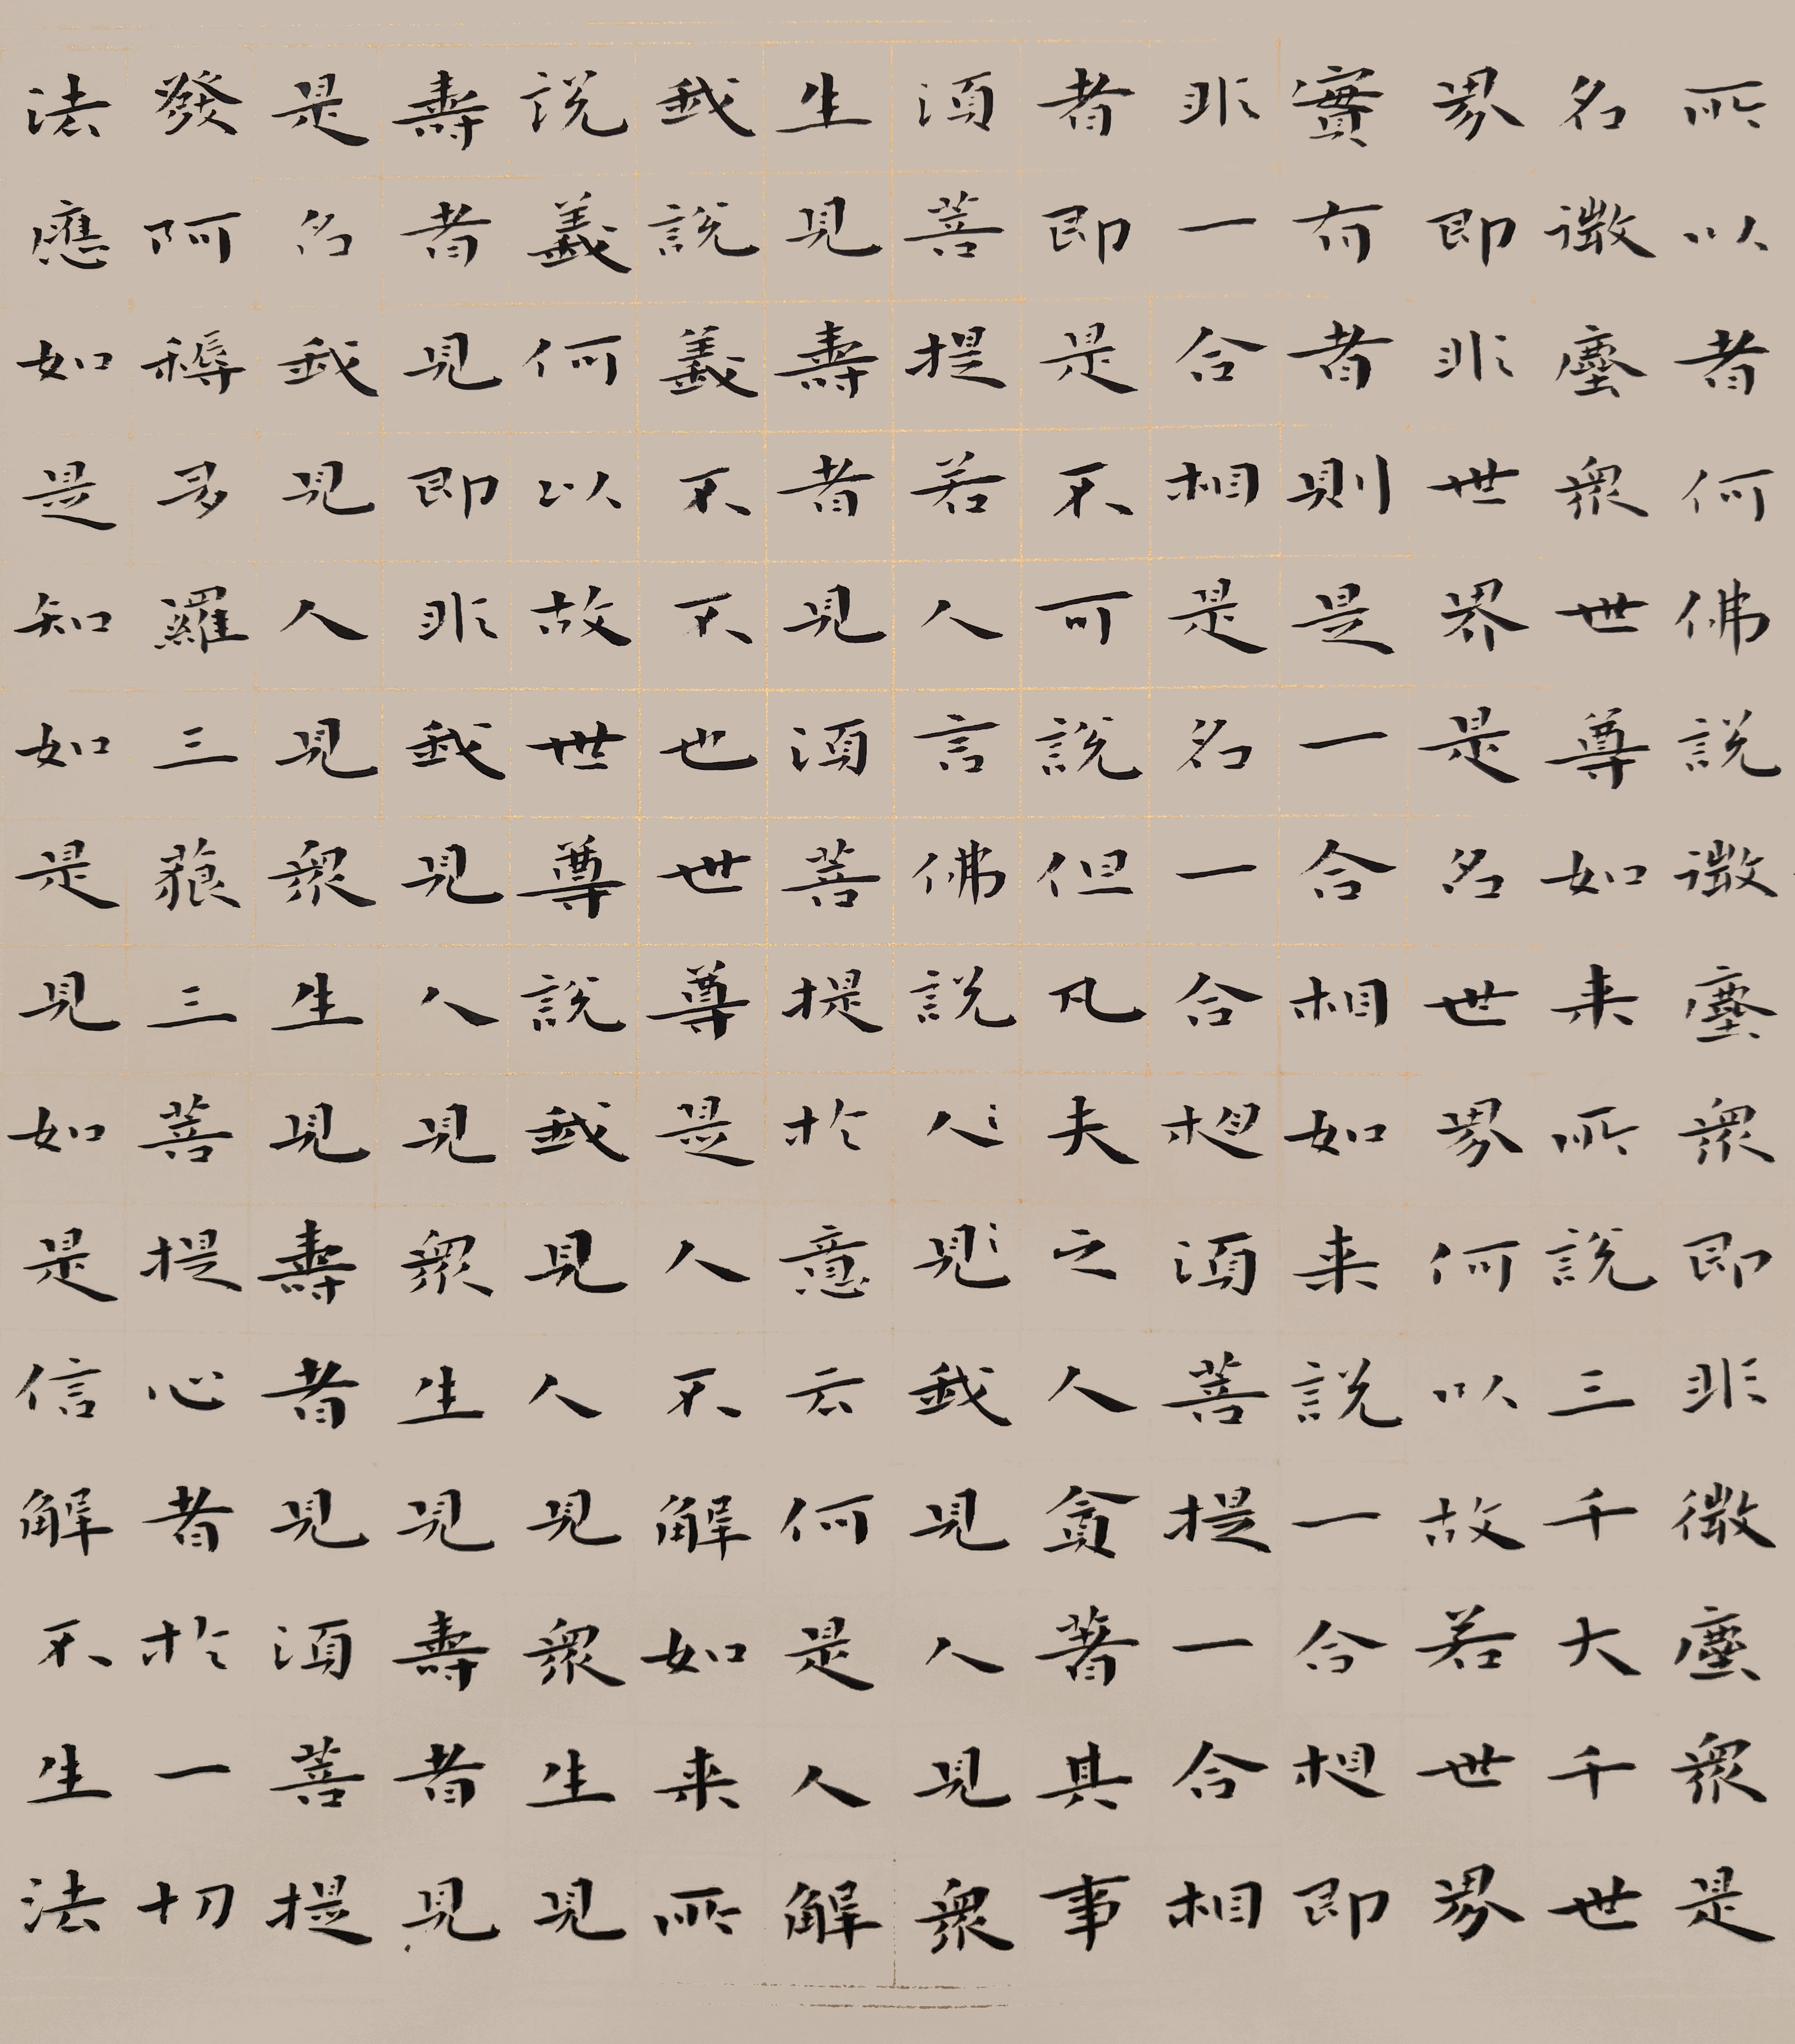 所以者何佛說微塵衆即非微塵衆是
名微塵衆世尊如来所說三千大千世
界即非世界是名世界何以故若世界
實有者則是一合相如来說一合想即
非一合相是名一合想須菩提一合相
者即是不可說但凡夫之人貪著其事
須菩提若人言佛說人見我見人見衆
生見壽者見須菩提於意云何是人解
我說義不不也世尊是人不解如来所
說義何以故世尊說我見人見衆生見
壽者見即非我見人見衆生見壽者見
是名我見人見衆生見壽者見須菩提
發阿耨多羅三藐三菩提心者於一切
法應如是知如是見如是信解不生法